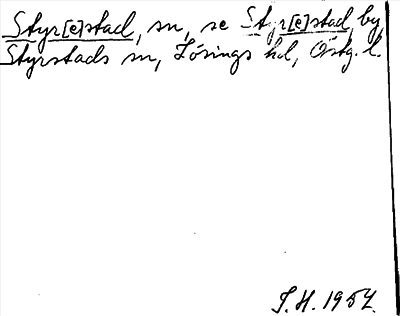 Styr[e]stad, sn, se Styr[e]stad, by,
Styrstads sn, Lösings hd, Östg. l.
S.H. 1957.